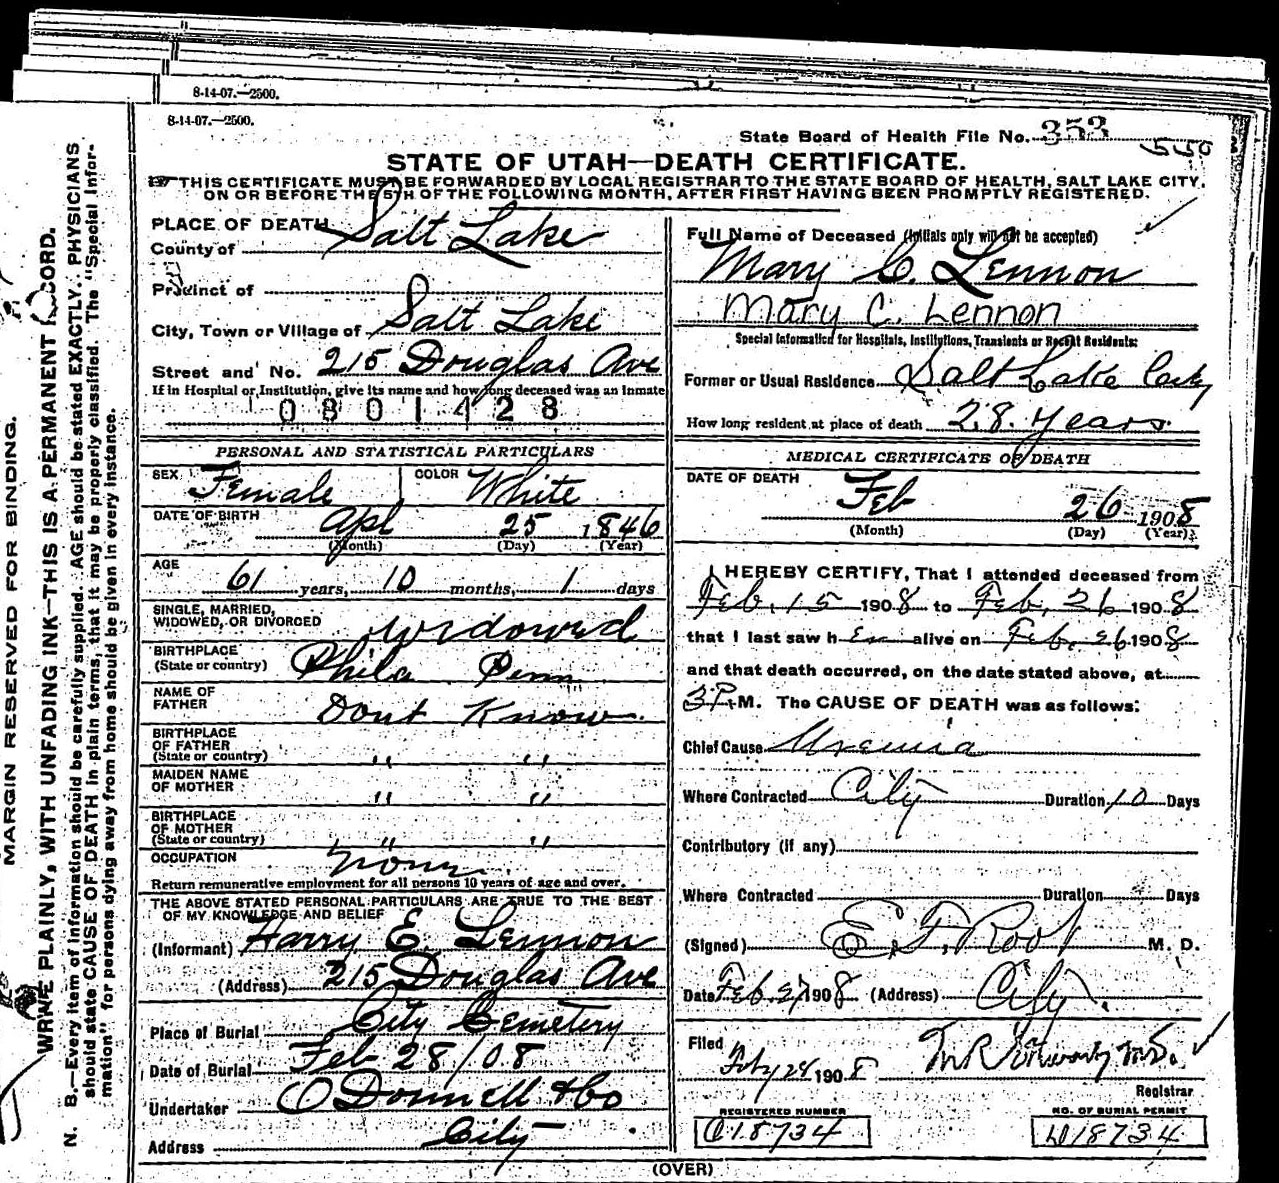 8-14-07.—2500.
8-14-07.—2500.
State Board of Health File No. 353
550
STATE OF UTAH—DEATH CERTIFICATE.
THIS CERTIFICATE MUST BE FORWARDED BY LOCAL REGISTRAR TO THE STATE BOARD OF HEALTH, SALT LAKE CITY,
ON OR BEFORE THE 5TH OF THE FOLLOWING MONTH, AFTER FIRST HAVING BEEN PROMPTLY REGISTERED.
PLACE OF DEATH
County of Salt Lake
Precinct of
City, Town or Village of Salt Lake
Street and No. 215 Douglas Ave
If in Hospital or Institution, give its name and how long deceased was an inmate
0801428
PERSONAL AND STATISTICAL PARTICULARS
SEX Female COLOR White
DATE OF BIRTH Apl 25 1846
(Month) (Day) (Year)
AGE
61 years, 10 months, 1 days
SINGLE, MARRIED,
WIDOWED, OR DIVORCED Widowed
BIRTHPLACE
(State or country) Phila Penn
NAME OF
FATHER Dont Know
BIRTHPLACE
OF FATHER
(State or country) " "
MAIDEN NAME
OF MOTHER " "
BIRTHPLACE
OF MOTHER
(State or country) " "
OCCUPATION None
Return remunerative employment for all persons 10 years of age and over.
THE ABOVE STATED PERSONAL PARTICULARS ARE TRUE TO THE BEST
OF MY KNOWLEDGE AND BELIEF
(Informant) Harry E. Lennon
(Address) 215 Douglas Ave
Place of Burial City Cemetery
Date of Burial Feb 28/08
Undertaker O'Donnell & Co
Address City
Full Name of Deceased (Initials only will not be accepted)
Mary C. Lennon
Mary C. Lennon
Special Information for Hospitals, Institutions, Transients or Recent Residents:
Former or Usual Residence Salt Lake City
How long resident at place of death 28 years
MEDICAL CERTIFICATE OF DEATH
DATE OF DEATH
Feb 26 1908
(Month) (Day) (Year)
I HEREBY CERTIFY, That I attended deceased from
Feb. 15 1908 to Feb. 26 1908
that I last saw h er alive on Feb. 26 1908
and that death occurred, on the date stated above, at
3 P. M. The CAUSE OF DEATH was as follows:
Chief Cause Uremia
Where Contracted City Duration 10 Days
Contributory (if any)
Where Contracted Duration Days
(Signed) E. F. Root M. D.
Date Feb. 27 1908 (Address) City.
Filed
Feby 28 1908
Registrar
REGISTERED NUMBER
C18734
NO. OF BURIAL PERMIT
D18734
(OVER)
MARGIN RESERVED FOR BINDING.
WRITE PLAINLY, WITH UNFADING INK—THIS IS A PERMANENT RECORD.
N. B.—Every item of information should be carefully supplied. AGE should be stated EXACTLY. PHYSICIANS
should state CAUSE OF DEATH in plain terms, that it may be properly classified. The "Special Infor-
mation" for persons dying away from home should be given in every instance.